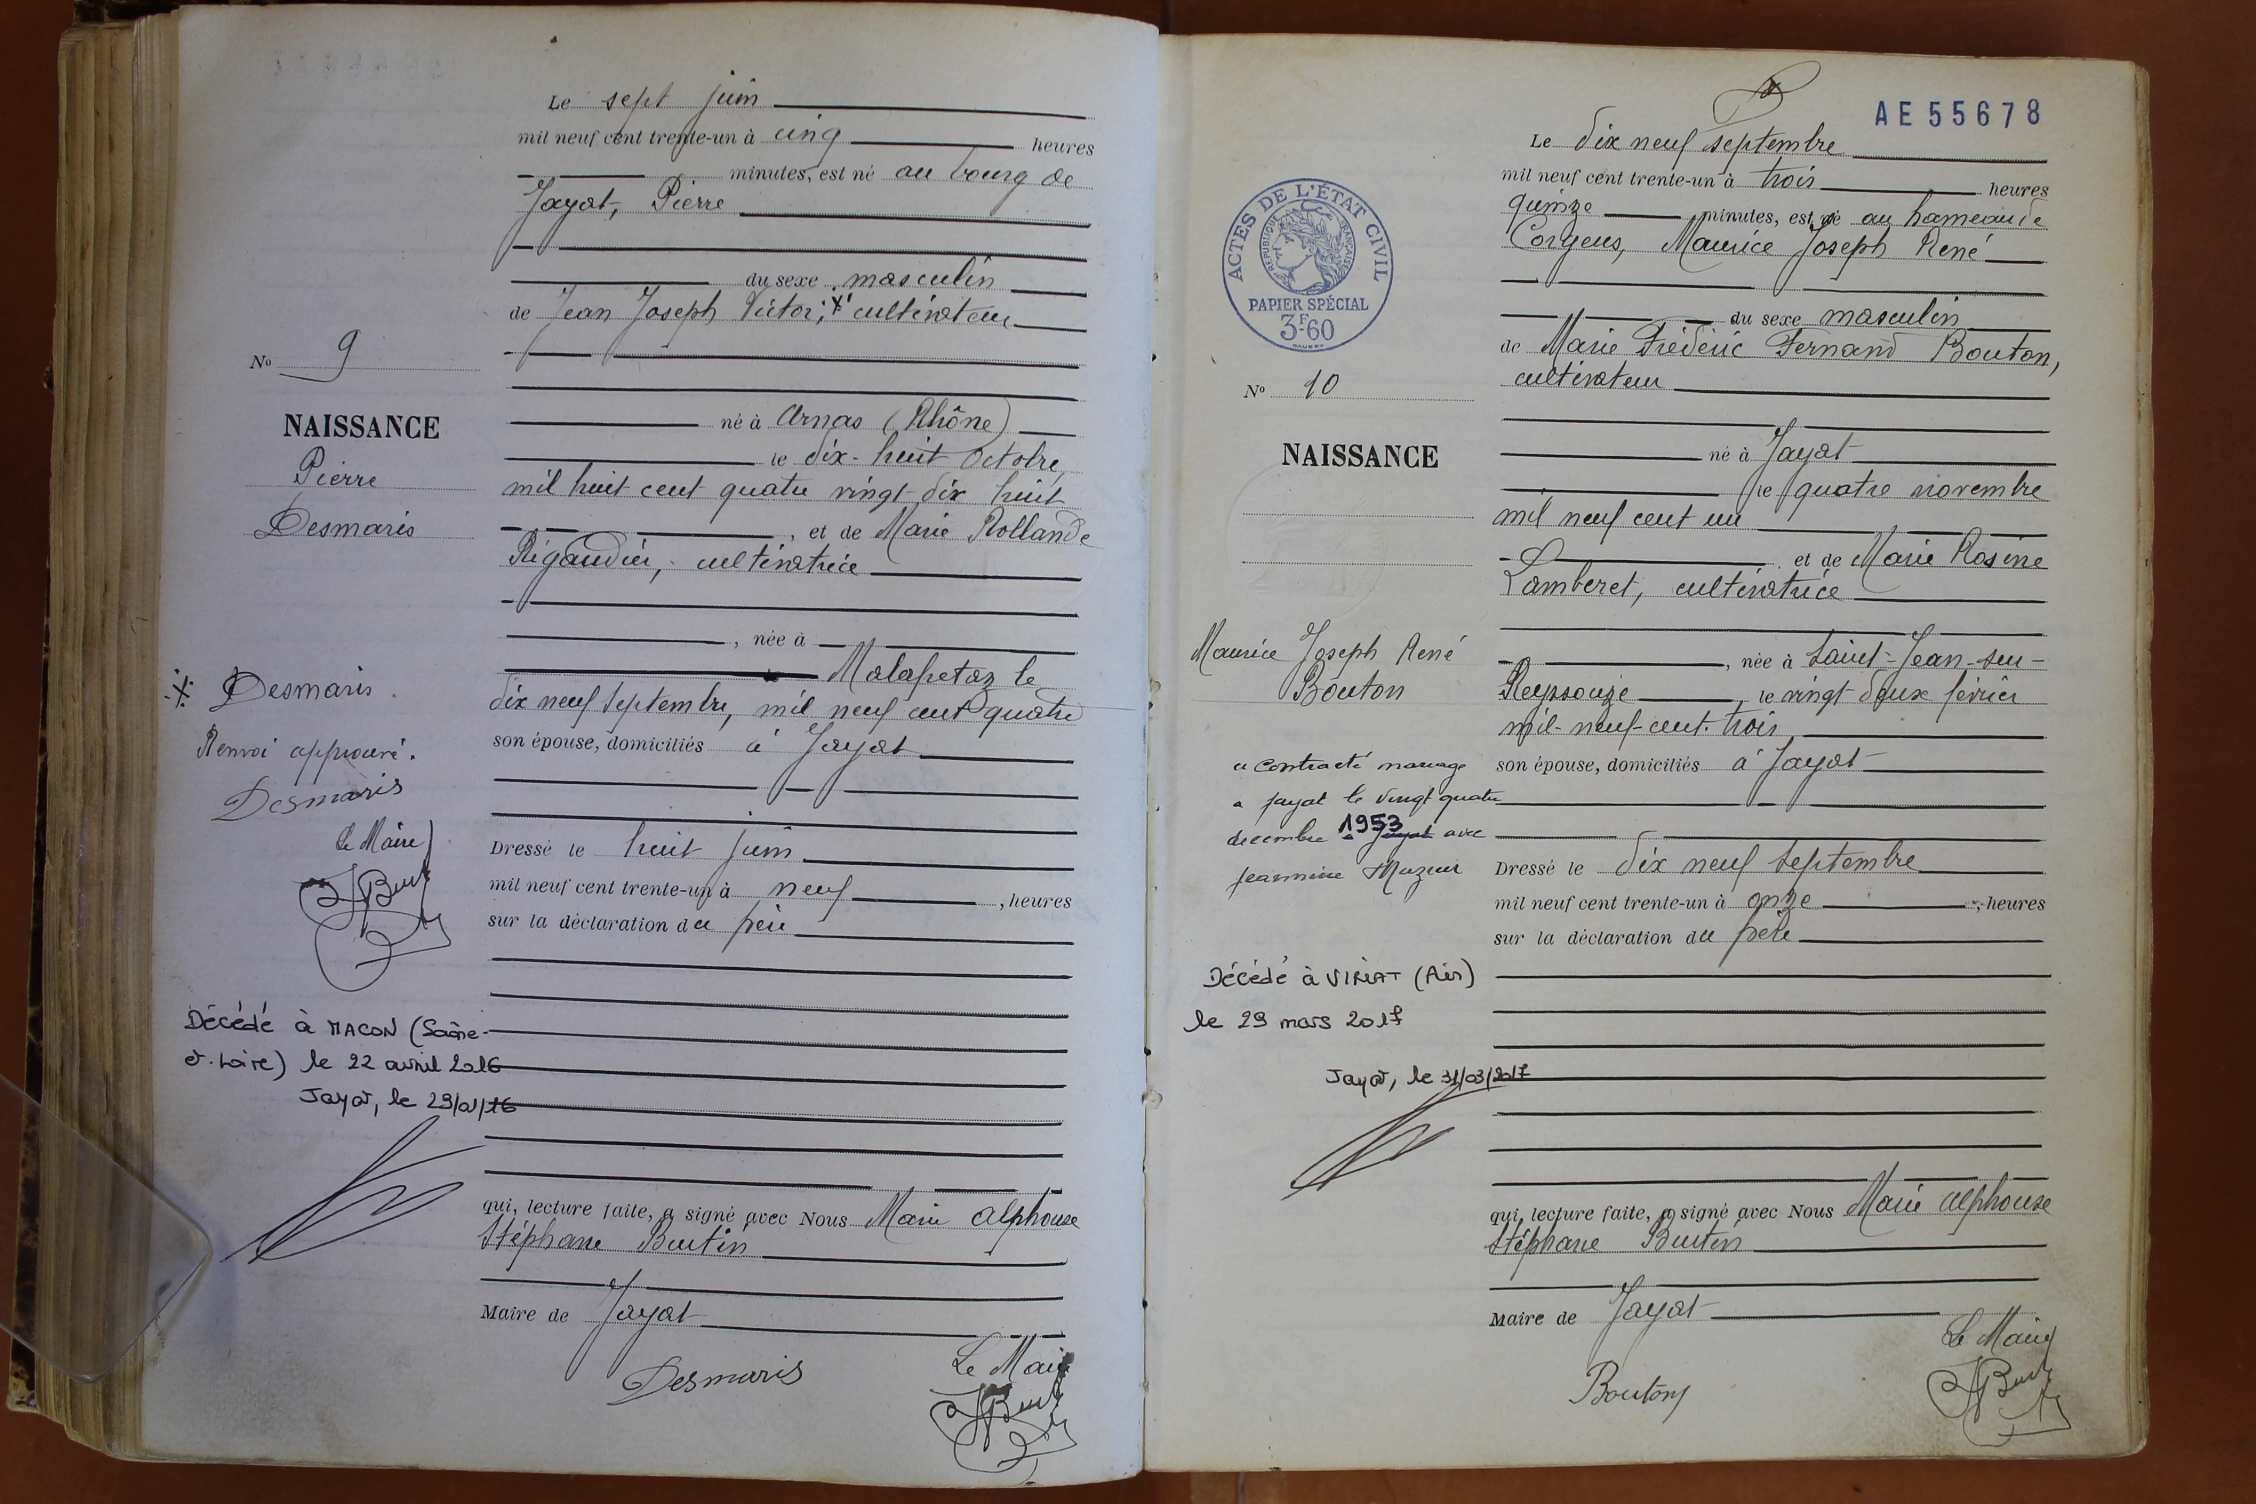 Le sept juin
mil neuf cent trente-un à cinq heures
minutes, est né au bourg de
Jayat, Pierre
du sexe masculin
de Jean Joseph Victor, cultivateur
né à Arnas (Rhône)
le dix-huit Octobre
mil huit cent quatre vingt dix huit
, et de Marie Rollande
Rigaudier, cultivatrice
, née à
Malapetaz le
dix neuf septembre, mil neuf cent quatre
son épouse, domiciliés à Jayat
Dressé le huit juin
mil neuf cent trente-un à neuf , heures
sur la déclaration du père
qui, lecture faite, a signé avec Nous Marie Alphonse
Stéphane Burtin
Maire de Jayat
Desmaris
Le Maire
No 9
NAISSANCE
Pierre
Desmaris
Desmaris.
Renvoi approuvé.
Desmaris
Le Maire
Décédé à MACON (Saône-
et-Loire) le 22 avril 2016
Jayat, le
AE55678
Le dix neuf septembre
mil neuf cent trente-un à trois heures
quinze minutes, est né au hameau de
Corgeus, Maurice Joseph René
du sexe masculin
de Marie Frédéric Fernand Bouton,
cultivateur
né à Jayat
le quatre novembre
mil neuf cent un
et de Marie Rosine
Lamberet, cultivatrice
, née à Saint-Jean-sur-
Reyssouze le vingt deux février
mil-neuf-cent-trois
son épouse, domiciliés à Jayat
Dressé le dix neuf septembre
mil neuf cent trente-un à onze , heures
sur la déclaration du père
qui, lecture faite, a signé avec Nous Marie Alphonse
Stéphane Burtin
Maire de Jayat
Le Maire
Bouton
ACTES DE L'ÉTAT CIVIL
RÉPUBLIQUE FRANÇAISE
PAPIER SPÉCIAL
3F60
No 10
NAISSANCE
Maurice Joseph René
Bouton
a contracté mariage
a Jayat le vingt quatre
decembre 1953 a Jayat avec
Jeannine
Décédé à VIRIAT (Ain)
le 29 mars 2017
Jayat, le 31/03/2017